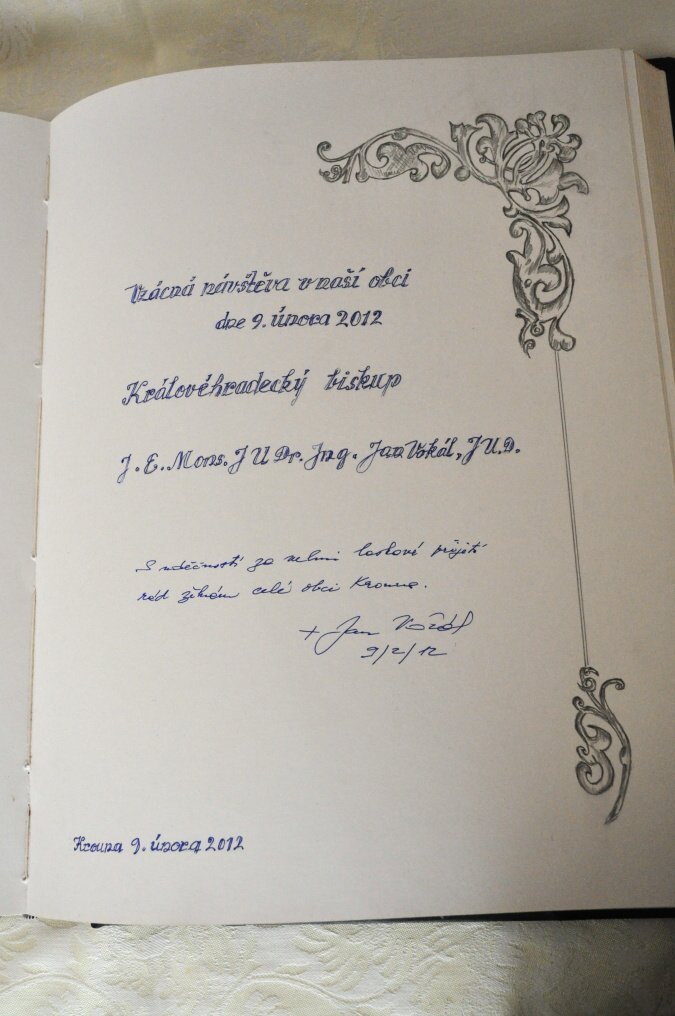 Vzácná návštěva v naší obci
dne 9. února 2012
Královéhradecký biskup
J. E. Mons. JUDr. Ing. Jan Vokál, JU.D.
S vděčností za velmi laskavé přijetí
rád žehnám celé obci Krouna.
+ Jan Vokál
9/2/12
Krouna 9. února 2012